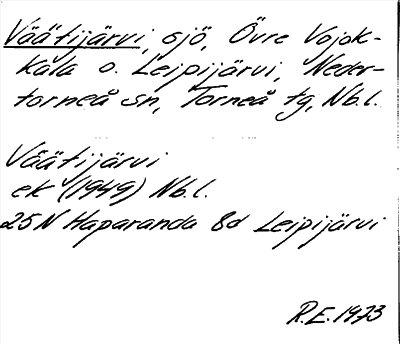 Väätijärvi, sjö, Övre Vojak-
kala o. Leipijärvi, Neder-
torneå sn, Torneå tg, Nb.l.
Väätijärvi
ek (1949) Nb.l.
25N Haparanda 8d Leipijärvi
R.E. 1973